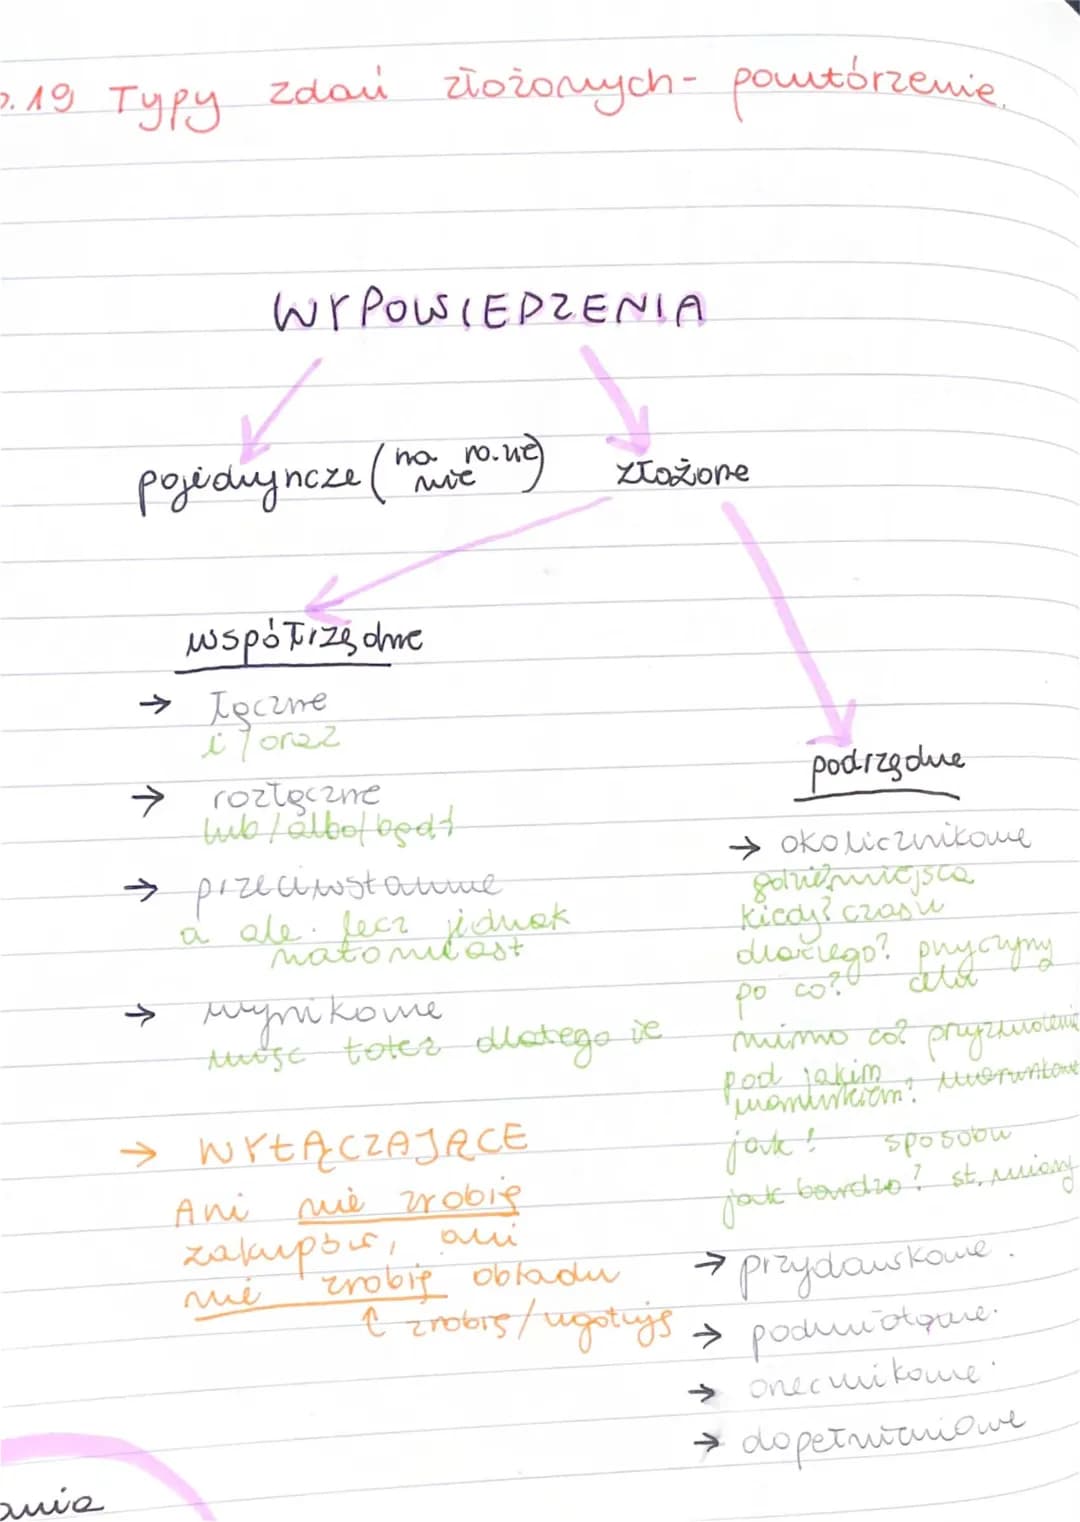 .19 Typy zdań złożonych - powtórzenie.
WYPOWIEDZENIA
pojedyncze (na
nie)
złożone
współrzędne
→ łączne
i / oraz
→ rozłączne
lub / albo / bądź
→ przeciwstawne
a ale. lecz jednak
natomiast
→ wynikowe
więc toteż dlatego że
→ WYŁĄCZAJĄCE
Ani nie zrobię
zakupów, ani
nie zrobię obiadu
↑ zrobię / ugotuję
podrzędne
→ okolicznikowe
gdzie? miejsca
kiedy? czasu
dlaczego? przyczyny
po co? celu
mimo co? przyzwolenia
pod jakim
warunkiem? warunkowe
jak? sposobu
jak bardzo? st. miary
→ przydawkowe.
→ podmiotowe.
→ orzecznikowe.
→ dopełnieniowe
ania